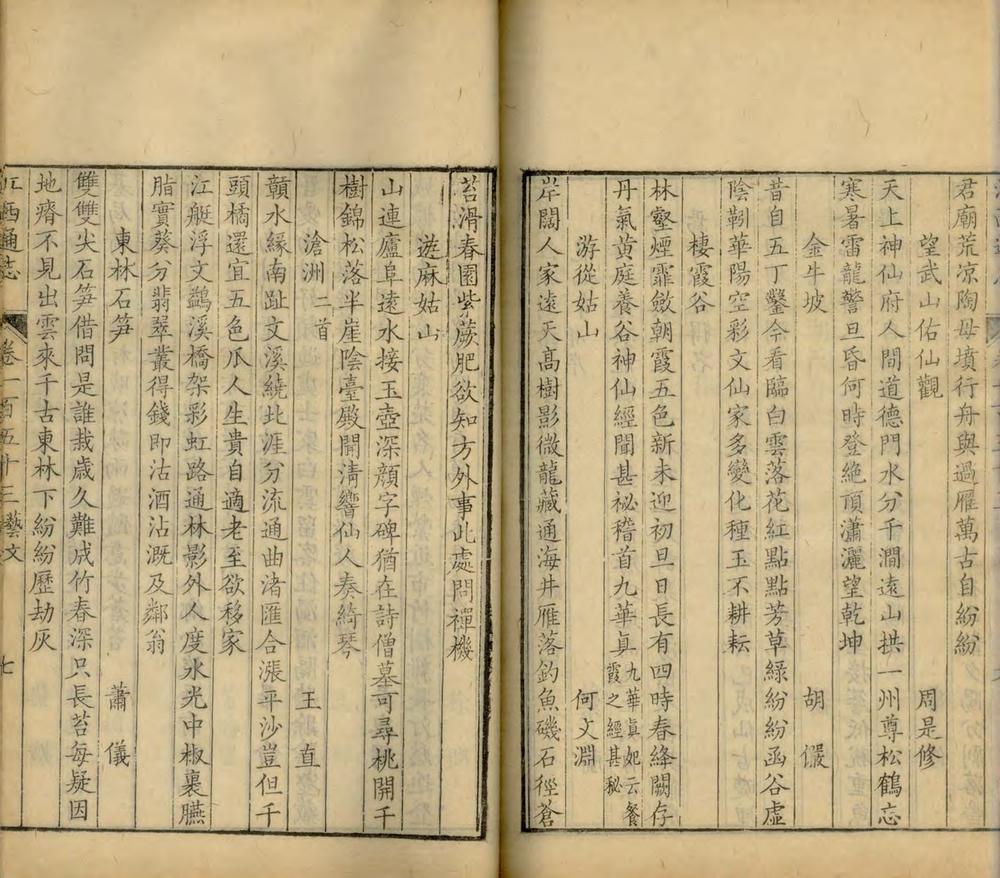 君廟荒凉陶母墳行舟與過雁萬古自紛紛
望武山佑仙觀 周是修
天上神仙府人間道德門水分千澗遠山拱一州尊松鶴忘
寒暑雷龍警旦昏何時登絶頂瀟灑望乾坤
金牛坡 胡儼
昔自五丁鑿今看臨白雲落花紅點點芳草綠紛紛函谷虛
陰靷華陽空彩文仙家多變化種玉不耕耘
棲霞谷
林壑煙霏斂朝霞五色新未迎初旦日長有四時春絳闕存
丹氣黃庭養谷神仙經聞甚秘稽首九華真九華真妃云餐霞之經甚秘
游從姑山 何文淵
岸闊人家遠天高樹影微龍藏通海井雁落釣魚磯石徑蒼
苔滑春園紫蕨肥欲知方外事此處問禪機
遊麻姑山
山連廬阜遠水接玉壺深顏字碑猶在詩僧墓可尋桃開千
樹錦松落半崖陰臺殿聞清響仙人奏綺琴
滄洲二首 王直
贛水緣南趾文溪繞北涯分流通曲渚匯合漲平沙豈但千
頭橘還宜五色瓜人生貴自適老至欲移家
江艇浮文鷁溪橋架彩虹路通林影外人度水光中椒裏臙
脂實葵分翡翠叢得錢即沽酒沾溉及鄰翁
東林石笋 蕭儀
雙雙尖石笋借問是誰栽歲久難成竹春深只長苔每疑因
地瘠不見出雲來千古東林下紛紛歷劫灰
江西通志 卷一百五十三 藝文 七